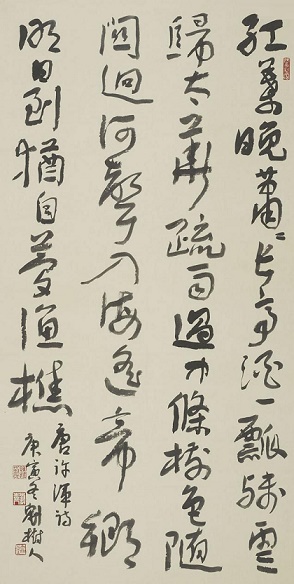 紅葉晚蕭〻長亭酒一瓢殘雲
歸太華疏雨過中條樹色隨
關迥河聲入海遙帝鄉
明日到猶自夢漁樵
唐許渾詩
庚寅冬劉樹人